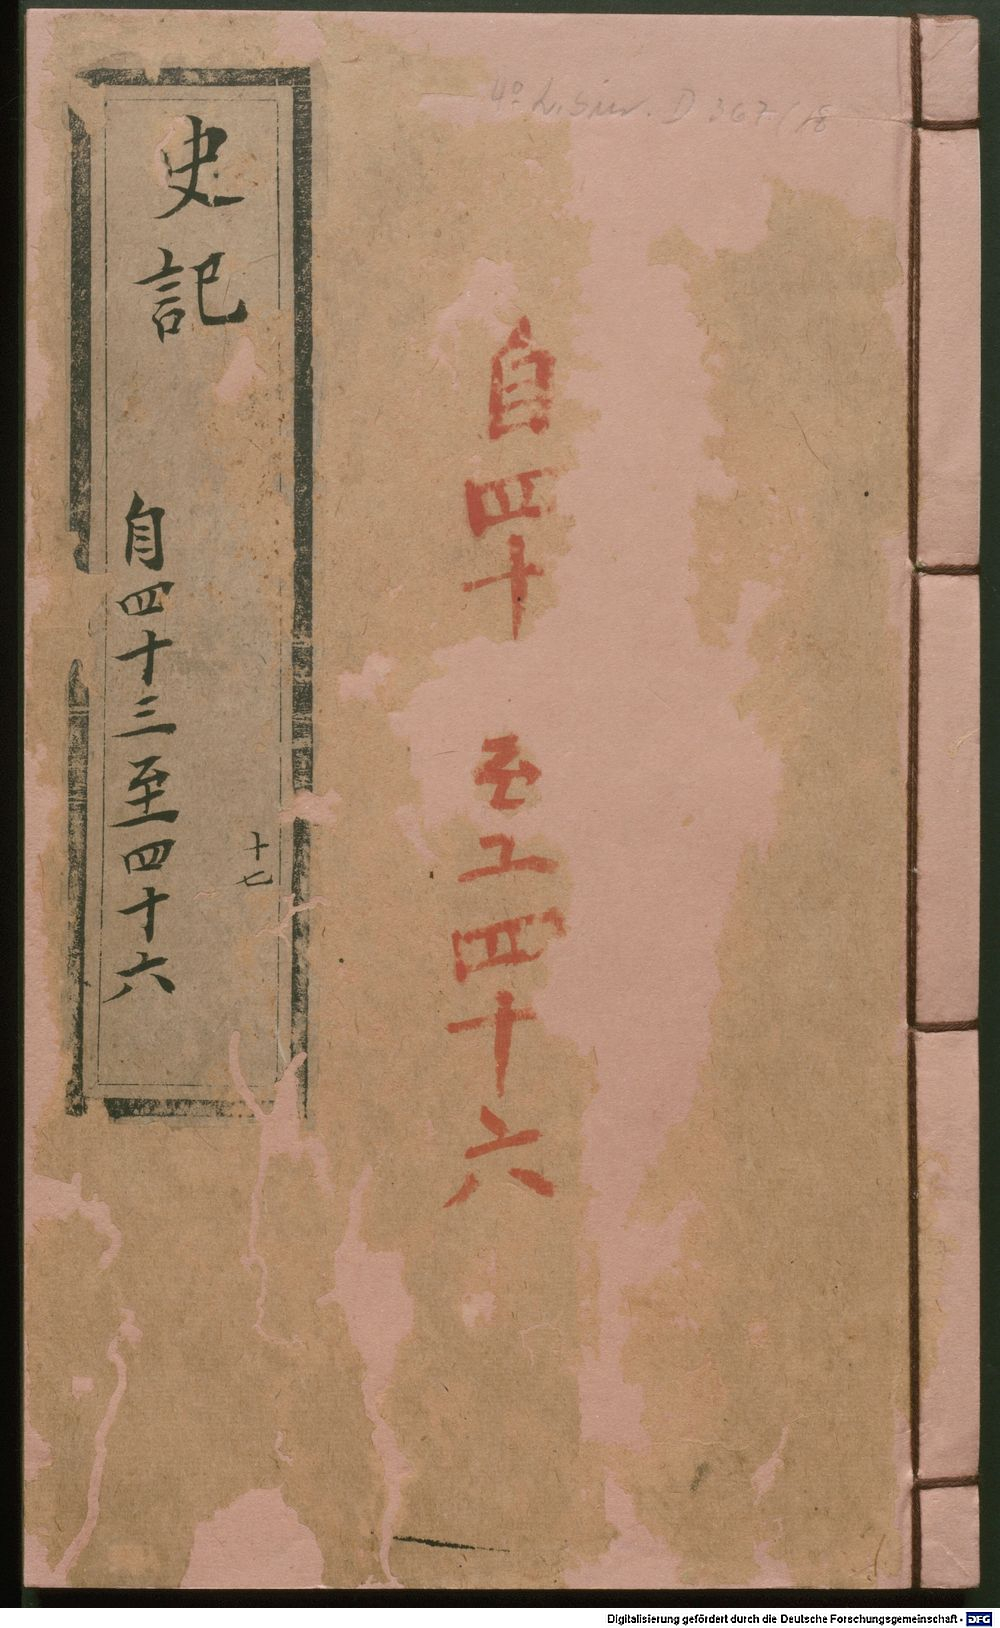 4º L. sin. D 367/18
自四十
至工四十六
史記
自四十三至四十六
十七
Digitalisierung gefördert durch die Deutsche Forschungsgemeinschaft - DFG